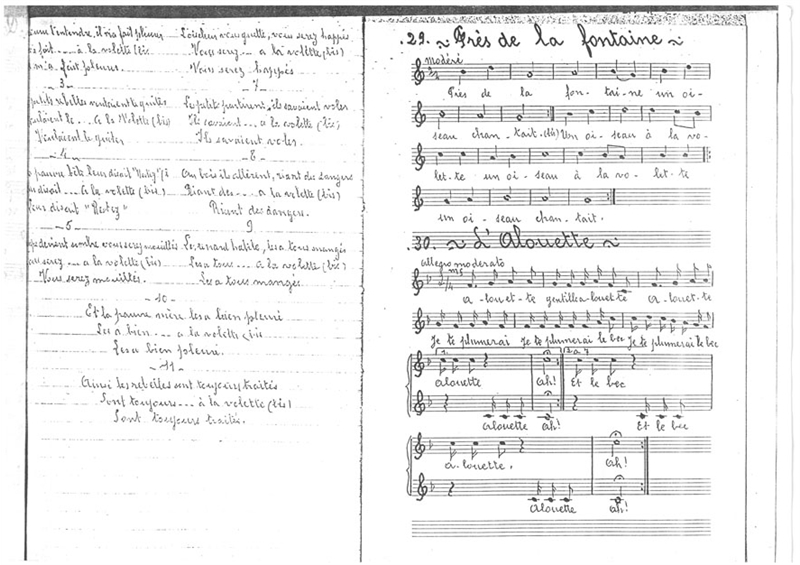 l'entendre, il m'a fait pleurer
fait.... à la volette (bis
m'a fait pleurer.
- 3 -
petits rebelles voulaient le quitter
voulaient le... à la Volette (bis)
Voulaient le quitter
- 4 -
pauvre bête leur disait "Restez"
disait... à la volette (bis)
Leur disait "Restez"
- 5 -
devient sombre vous serez mouillés
serez... à la volette (bis)
Vous serez mouillés.
L'oiseleur vous guette, vous serez happés
Vous serez... à la volette, (bis)
Vous serez happés
- 7 -
Les petits partirent, ils savaient voler
Ils savaient... à la volette (bis)
Ils savaient voler.
- 8 -
Au bois ils allèrent, riant des dangers
Riant des... à la volette (bis)
Riant des dangers.
9
Le renard habile, les a tous mangés
Les a tous... à la volette (bis)
Les a tous mangés.
- 10 -
Et la pauvre mère les a bien pleuré
Les a bien... à la volette (bis
Les a bien pleuré.
- 11 -
Ainsi les rebelles sont toujours traités
Sont toujours... à la volette (bis)
Sont toujours traités.
.29. ~ Près de la fontaine ~
Modéré
Près de la fon- tai- ne un oi-
seau chan- tait. (bis) Un oi- seau à la vo-
let- te un oi- seau à la vo- let- te
un oi- seau chan- tait.
.30. ~ L'Alouette ~
Allegro moderato
mf
a- louet- te gentille alouette a- louet- te
Je te plumerai Je te plumerai le bec Je te plumerai le bec
Alouette Ah! Et le bec
Alouette Ah! Et le bec
a- louette. Ah!
Alouette Ah!